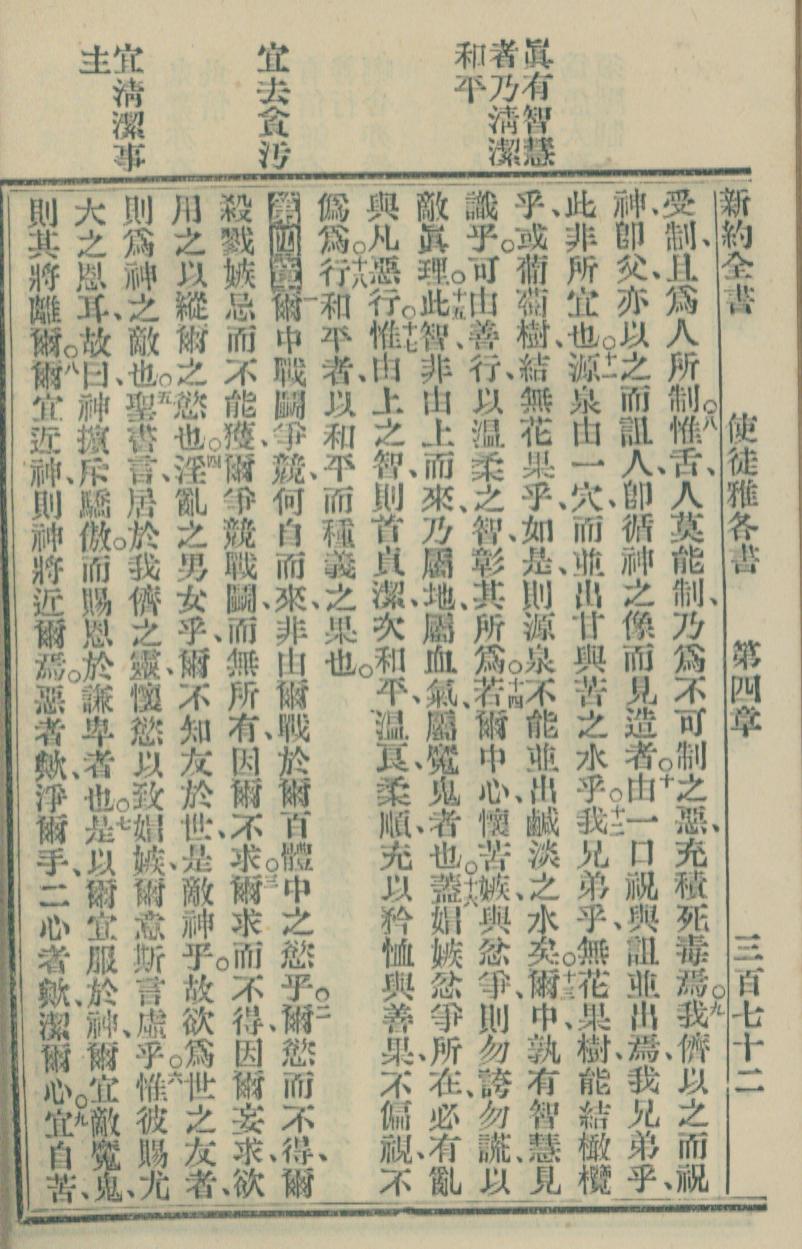 新約全書　使徒雅各書　第四章　三百七十二
眞有智慧
者乃淸潔
和平
宜去貪汚
宜淸潔事
主
受制、且爲人所制、○八惟舌、人莫能制、乃爲不可制之惡、充積死毒焉、○九我儕以之而祝
神、卽父、亦以之而詛人、卽循神之像而見造者、○十由一口祝與詛並出焉、我兄弟乎、
此非所宜也、○十一源泉由一穴、而並出甘與苦之水乎、○十二我兄弟乎、無花果樹、能結橄欖
乎、或葡萄樹、結無花果乎、如是、則源泉不能並出鹹淡之水矣、○十三爾中孰有智慧見
識乎、可由善行、以溫柔之智、彰其所爲、○十四若爾中心、懷苦嫉與忿爭、則勿誇、勿謊、以
敵眞理、○十五此智非由上而來、乃屬地、屬血氣、屬魔鬼者也、○十六蓋娼嫉忿爭所在、必有亂
與凡惡行、○十七惟由上之智、則首貞潔、次和平、溫良、柔順、充以矜恤與善果、不偏視、不
僞爲、○十八行和平者、以和平而種義之果也。
第四章一爾中戰鬭爭競、何自而來、非由爾戰於爾百體中之慾乎、○二爾慾而不得、爾
殺戮嫉忌而不能獲、爾爭競戰鬭、而無所有、因爾不求、○三爾求而不得、因爾妄求、欲
用之以縱爾之慾也、○四淫亂之男女乎、爾不知友於世、是敵神乎、故欲爲世之友者、
則爲神之敵也、○五聖書言、居於我儕之靈、懷慾以致娼嫉、爾意斯言虛乎、○六惟彼賜尤
大之恩耳、故曰、神擯斥驕傲、而賜恩於謙卑者也、○七是以爾宜服於神、爾宜敵魔鬼、
則其將離爾、○八爾宜近神、則神將近爾焉、惡者歟、淨爾手、二心者歟、潔爾心、○九宜自苦、